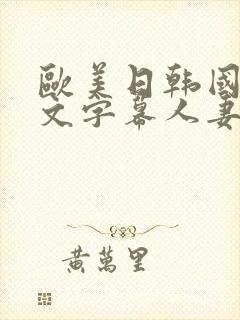 歐美日韩國
文字幕人妻
黃萬里